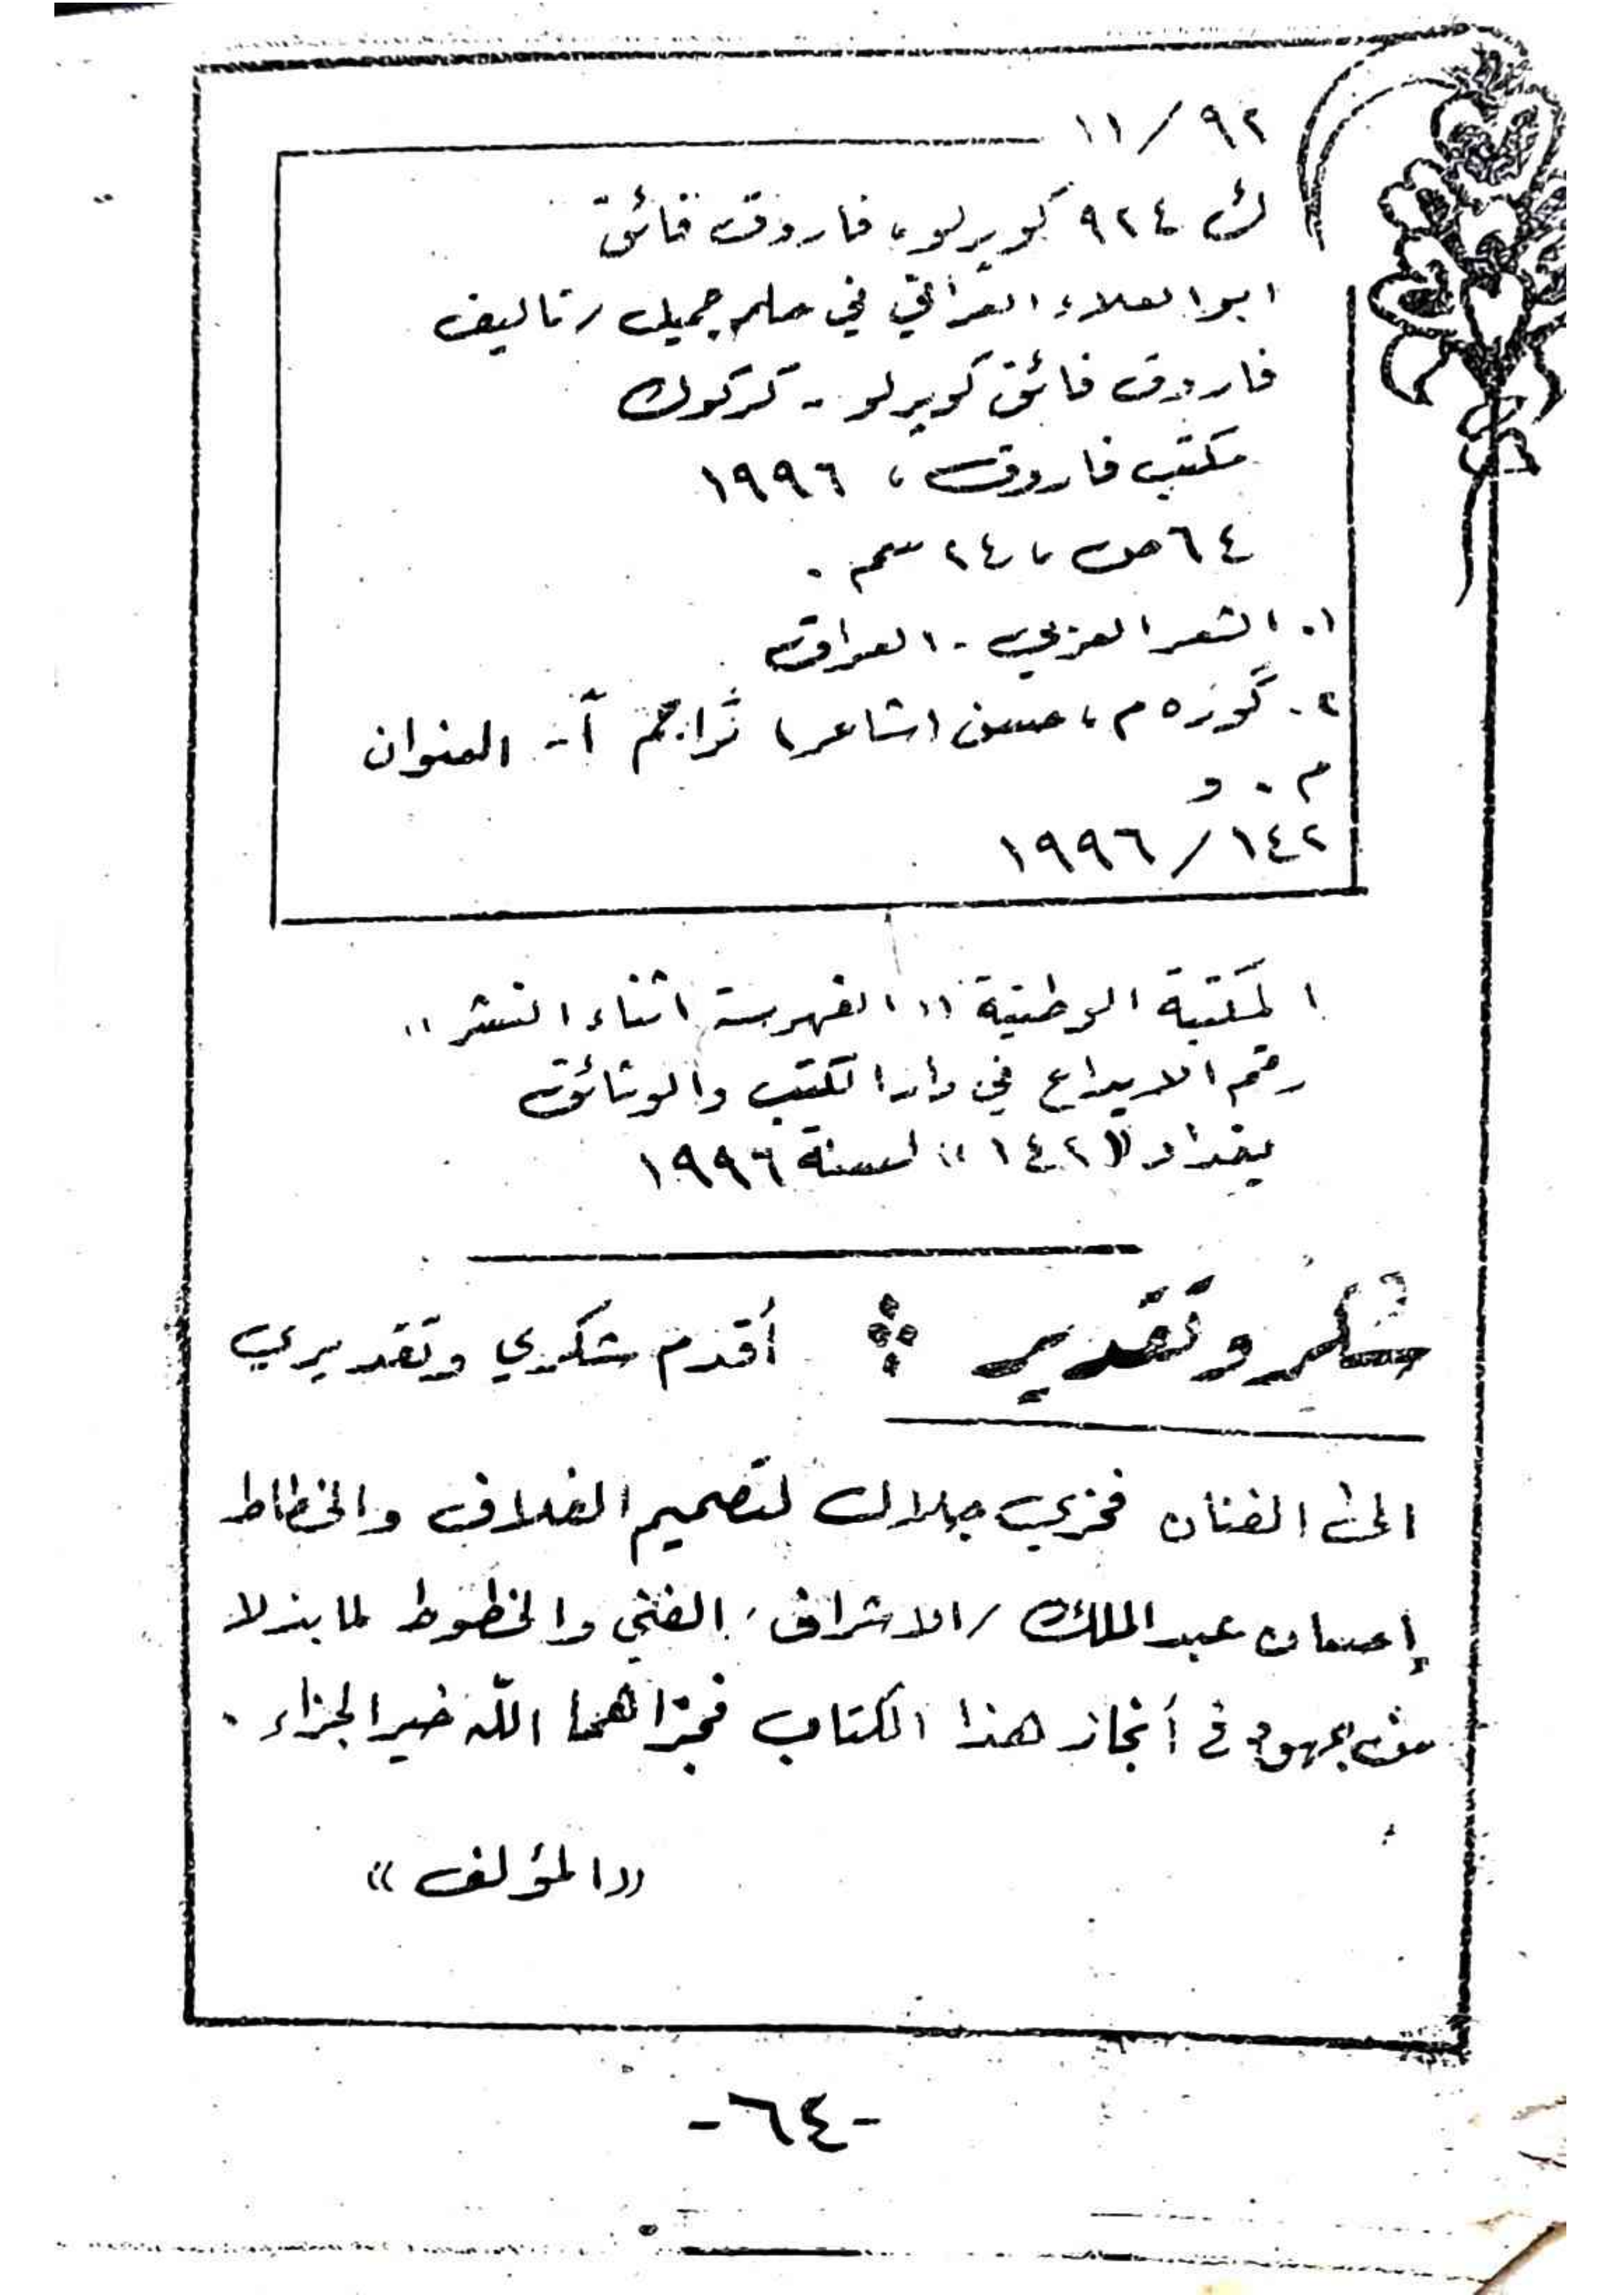 ٩٢/ ١١
ك ٩٢٤ كوبرلو، فاروق فائق
ابو العلاء العراقي في حلم جميل / تاليف
فاروق فائق كوبرلو - كركوك
مكتب فاروق ، ١٩٩٦
٦٤ ص ، ٢٤ سم .
١. الشعر العربي - العراق
٢. گوره م ، حسين (شاعر) تراجم آ- العنوان
م . و
١٤٢ / ١٩٩٦
المكتبة الوطنية «الفهرسة اثناء النشر»
رقم الايداع في دار الكتب والوثائق
بغداد «١٤٢» لسنة ١٩٩٦
شكر وتقدير أقدم شكري وتقديري
الى الفنان فخري جلال لتصميم الغلاف والخطاط
إحسان عبد الملك /الاشراف الفني والخطوط لما بذلا
من جهود في أنجاز هذا الكتاب فجزاهما الله خير الجزاء .
«المؤلف»
-٦٤-